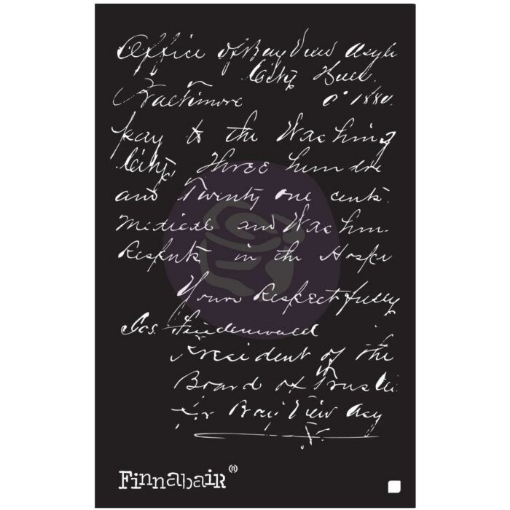 Office of Bay View Asyl
City Hall
Baltimore 1880.
pay to the Washing
City, Three hundre
and Twenty one cents
Medical and Washin
Respects in the Hospi
Yours Respectfully
Jos. Friedenwald
President of the
Board of Trustee
for Bay View Asy
Finnabair®